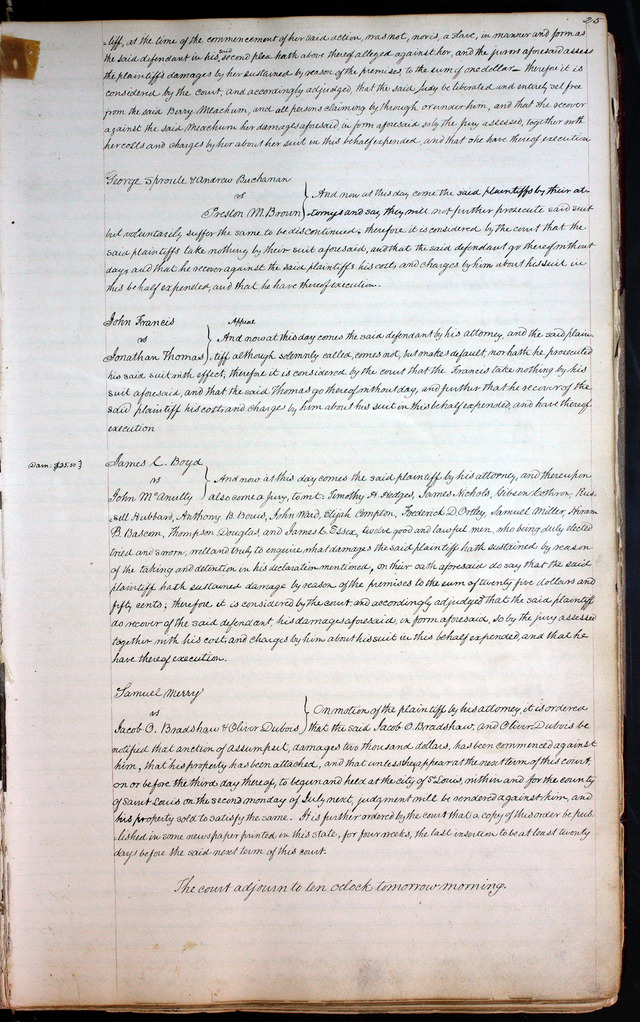 25
tiff, at the time of the commencement of her said action, was not, nor is, a slave, in manner and form as
the said defendant in his said second plea hath above thereof alleged against her, and the jurors aforesaid assess
the plaintiff's damages by her sustained by reason of the premises, to the sum of one dollar — Therefore it is
considered by the court, and accordingly adjudged, that the said Judy be liberated and entirely set free
from the said Berry Meachum, and all persons claiming by through or under him, and that she recover
against the said Meachum her damages aforesaid in form aforesaid so by the jury assessed, together with
her costs and charges by her about her suit in this behalf expended, and that she have thereof execution
George Sproule & Andrew Buchanan
vs
Preston M. Brown } And now at this day come the said plaintiffs by their at-
torneys and say they will not further prosecute said suit
but voluntarily suffer the same to be discontinued; therefore it is considered by the court that the
said plaintiffs take nothing by their suit aforesaid, and that the said defendant go thereof without
day, and that he recover against the said plaintiffs his costs and charges by him about his suit in
this behalf expended, and that he have thereof execution.
John Francis Appeal
vs
Jonathan Thomas } And now at this day comes the said defendant by his attorney, and the said plain-
tiff although solemnly called, comes not, but makes default, nor hath he prosecuted
his said suit with effect, therefore it is considered by the court that the Francis take nothing by his
suit aforesaid, and that the said Thomas go thereof without day, and further that he recover of the
said plaintiff his costs and charges by him about his suit in this behalf expended, and have thereof
execution
Dam: $25.50 }
James C. Boyd
vs
John McAnully } And now at this day comes the said plaintiff by his attorney, and thereupon
also come a jury, to wit: Timothy H. Hedges, James Nichols, Gibson Cothron, Rus-
sell Hubbard, Anthony B. Bouis, John Waid, Elijah Compton, Frederick D. Ortley, Samuel Miller, Hiram
B. Bascom, Thompson Douglas, and James C. Essex, twelve good and lawful men, who being duly elected
tried and sworn, well and truly to enquire what damages the said plaintiff hath sustained by reason
of the taking and detention in his declaration mentioned, on their oath aforesaid do say that the said
plaintiff hath sustained damage by reason of the premises to the sum of twenty five dollars and
fifty cents; therefore it is considered by the court and accordingly adjudged that the said plaintiff
do recover of the said defendant, his damages aforesaid, in form aforesaid, so by the jury assessed
together with his costs and charges by him about his suit in this behalf expended, and that he
have thereof execution.
Samuel Merry
vs
Jacob O. Bradshaw & Oliver Dubois } On motion of the plaintiff by his attorney, it is ordered
that the said Jacob O. Bradshaw, and Oliver Dubois be
notified that an action of assumpsit, damages two thousand dollars, has been commenced against
him, that his property has been attached, and that unless they appear at the next term of this court,
on or before the third day thereof, to begun and held at the city of St Louis, within and for the county
of Saint Louis on the second monday of July next, judgment will be rendered against him, and
his property sold to satisfy the same. It is further ordered by the court that a copy of this order be pub-
lished in some newspaper printed in this state, for four weeks, the last insertion to be at least twenty
days before the said next term of this court.
The court adjourn to ten oclock tomorrow morning.